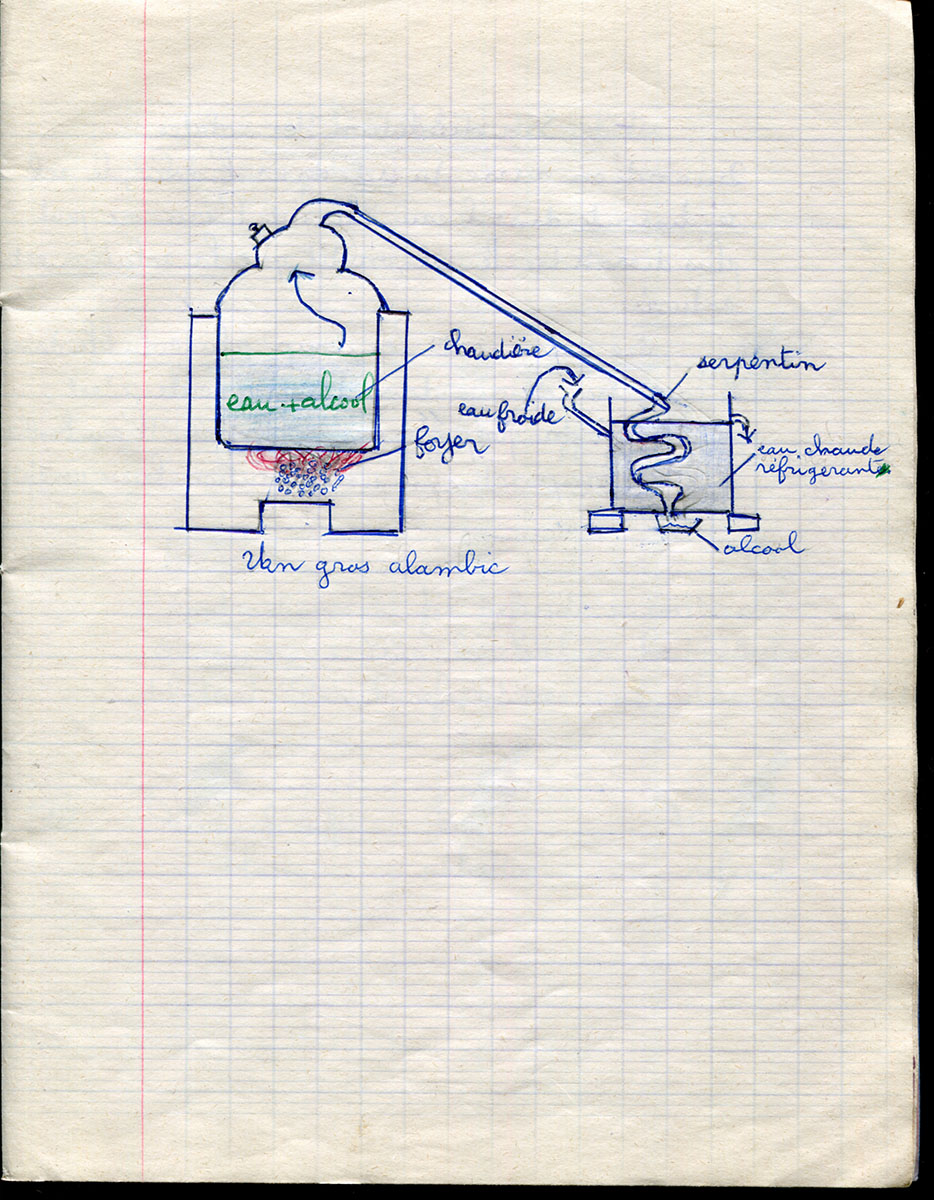 chaudière
serpentin
eau + alcool
eau froide
foyer
eau chaude
réfrigérante
alcool
Un gros alambic